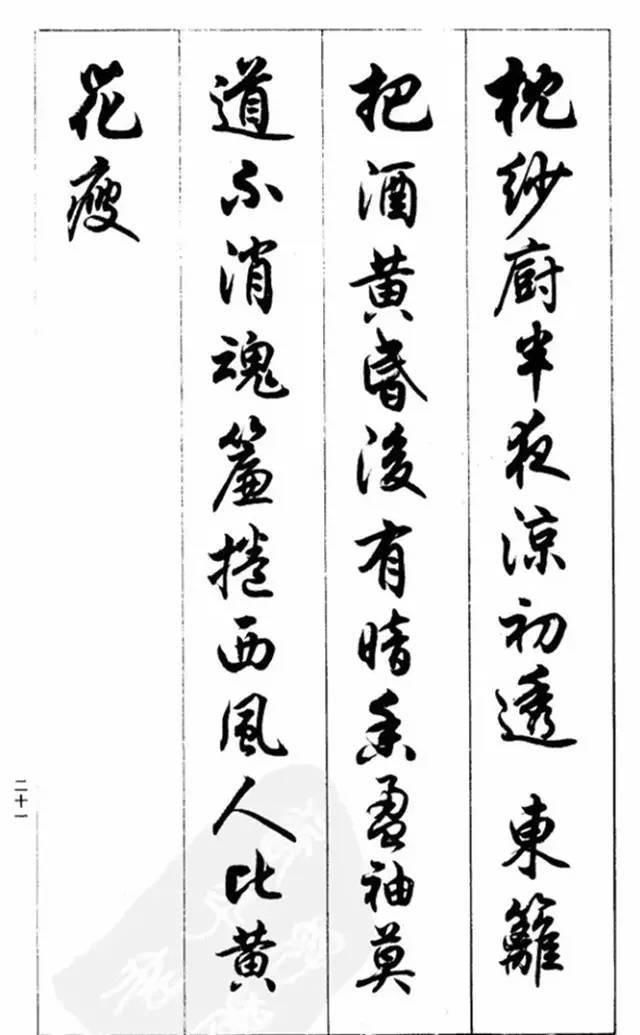 枕纱厨半夜涼初透 東籬
把酒黄昏後有暗香盈袖莫
道不消魂簾捲西風人比黄
花瘦
二十一